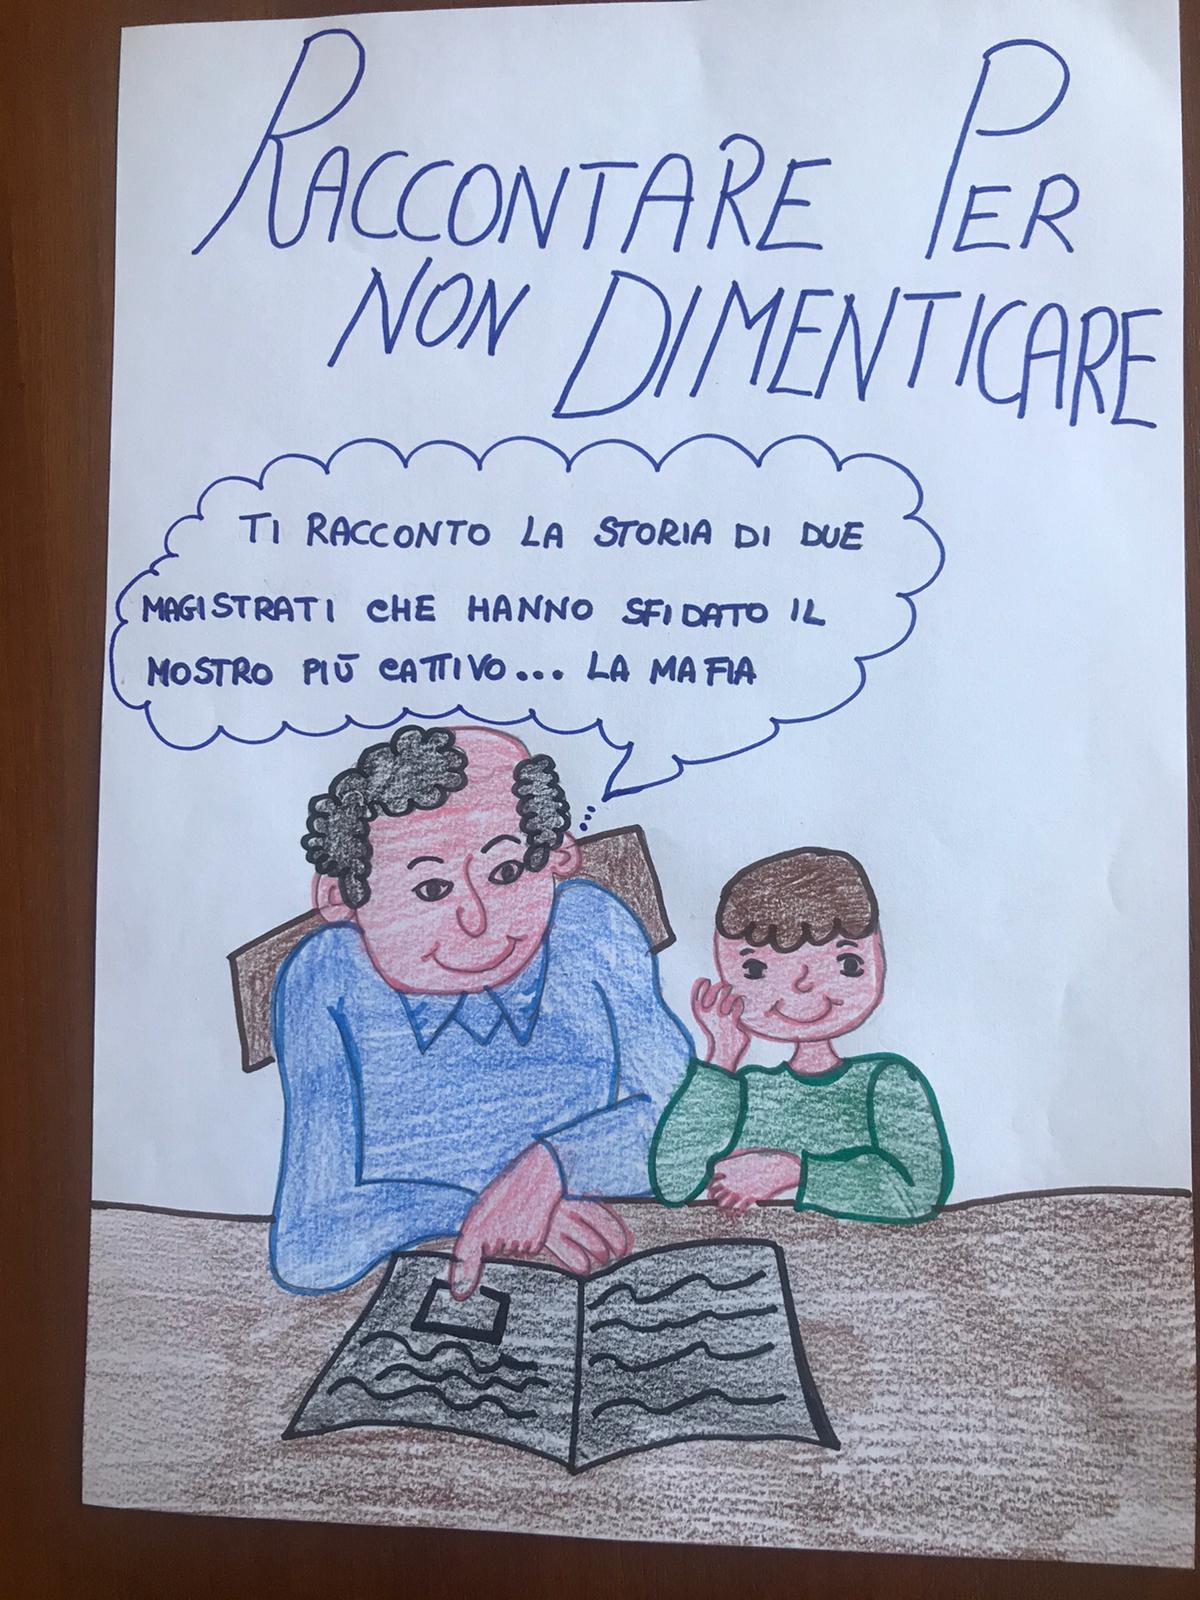 RACCONTARE PER
NON DIMENTICARE
TI RACCONTO LA STORIA DI DUE
MAGISTRATI CHE HANNO SFIDATO IL
MOSTRO PIÙ CATTIVO... LA MAFIA